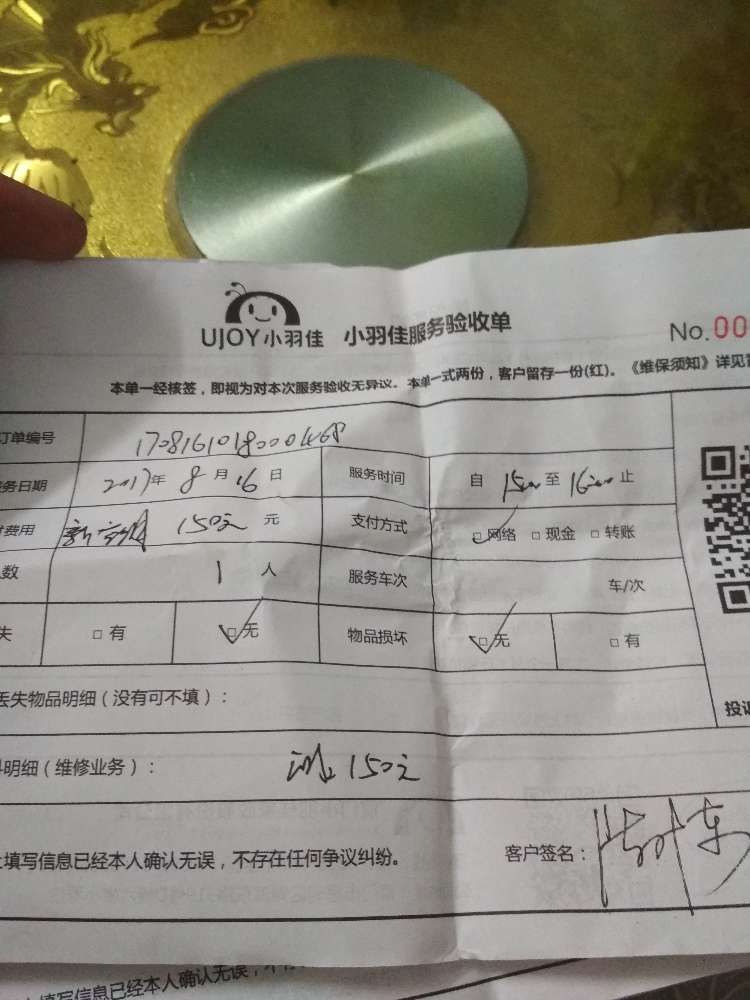 UJOY小羽佳 小羽佳服务验收单 No.00
本单一经核签，即视为对本次服务验收无异议。本单一式两份，客户留存一份(红)。《维保须知》详见
订单编号 1708161018000468
务日期 2017年 8 月 16 日 服务时间 自 15:00 至 16:00 止
费用 150元 元 支付方式 □网络 □现金 □转账
数 1 人 服务车次 车/次
失 □有 □无 物品损坏 □无 □有
丢失物品明细（没有可不填）：
投诉
明细（维修业务）： 150元
上填写信息已经本人确认无误，不存在任何争议纠纷。 客户签名：
填写信息已经本人确认无误，不